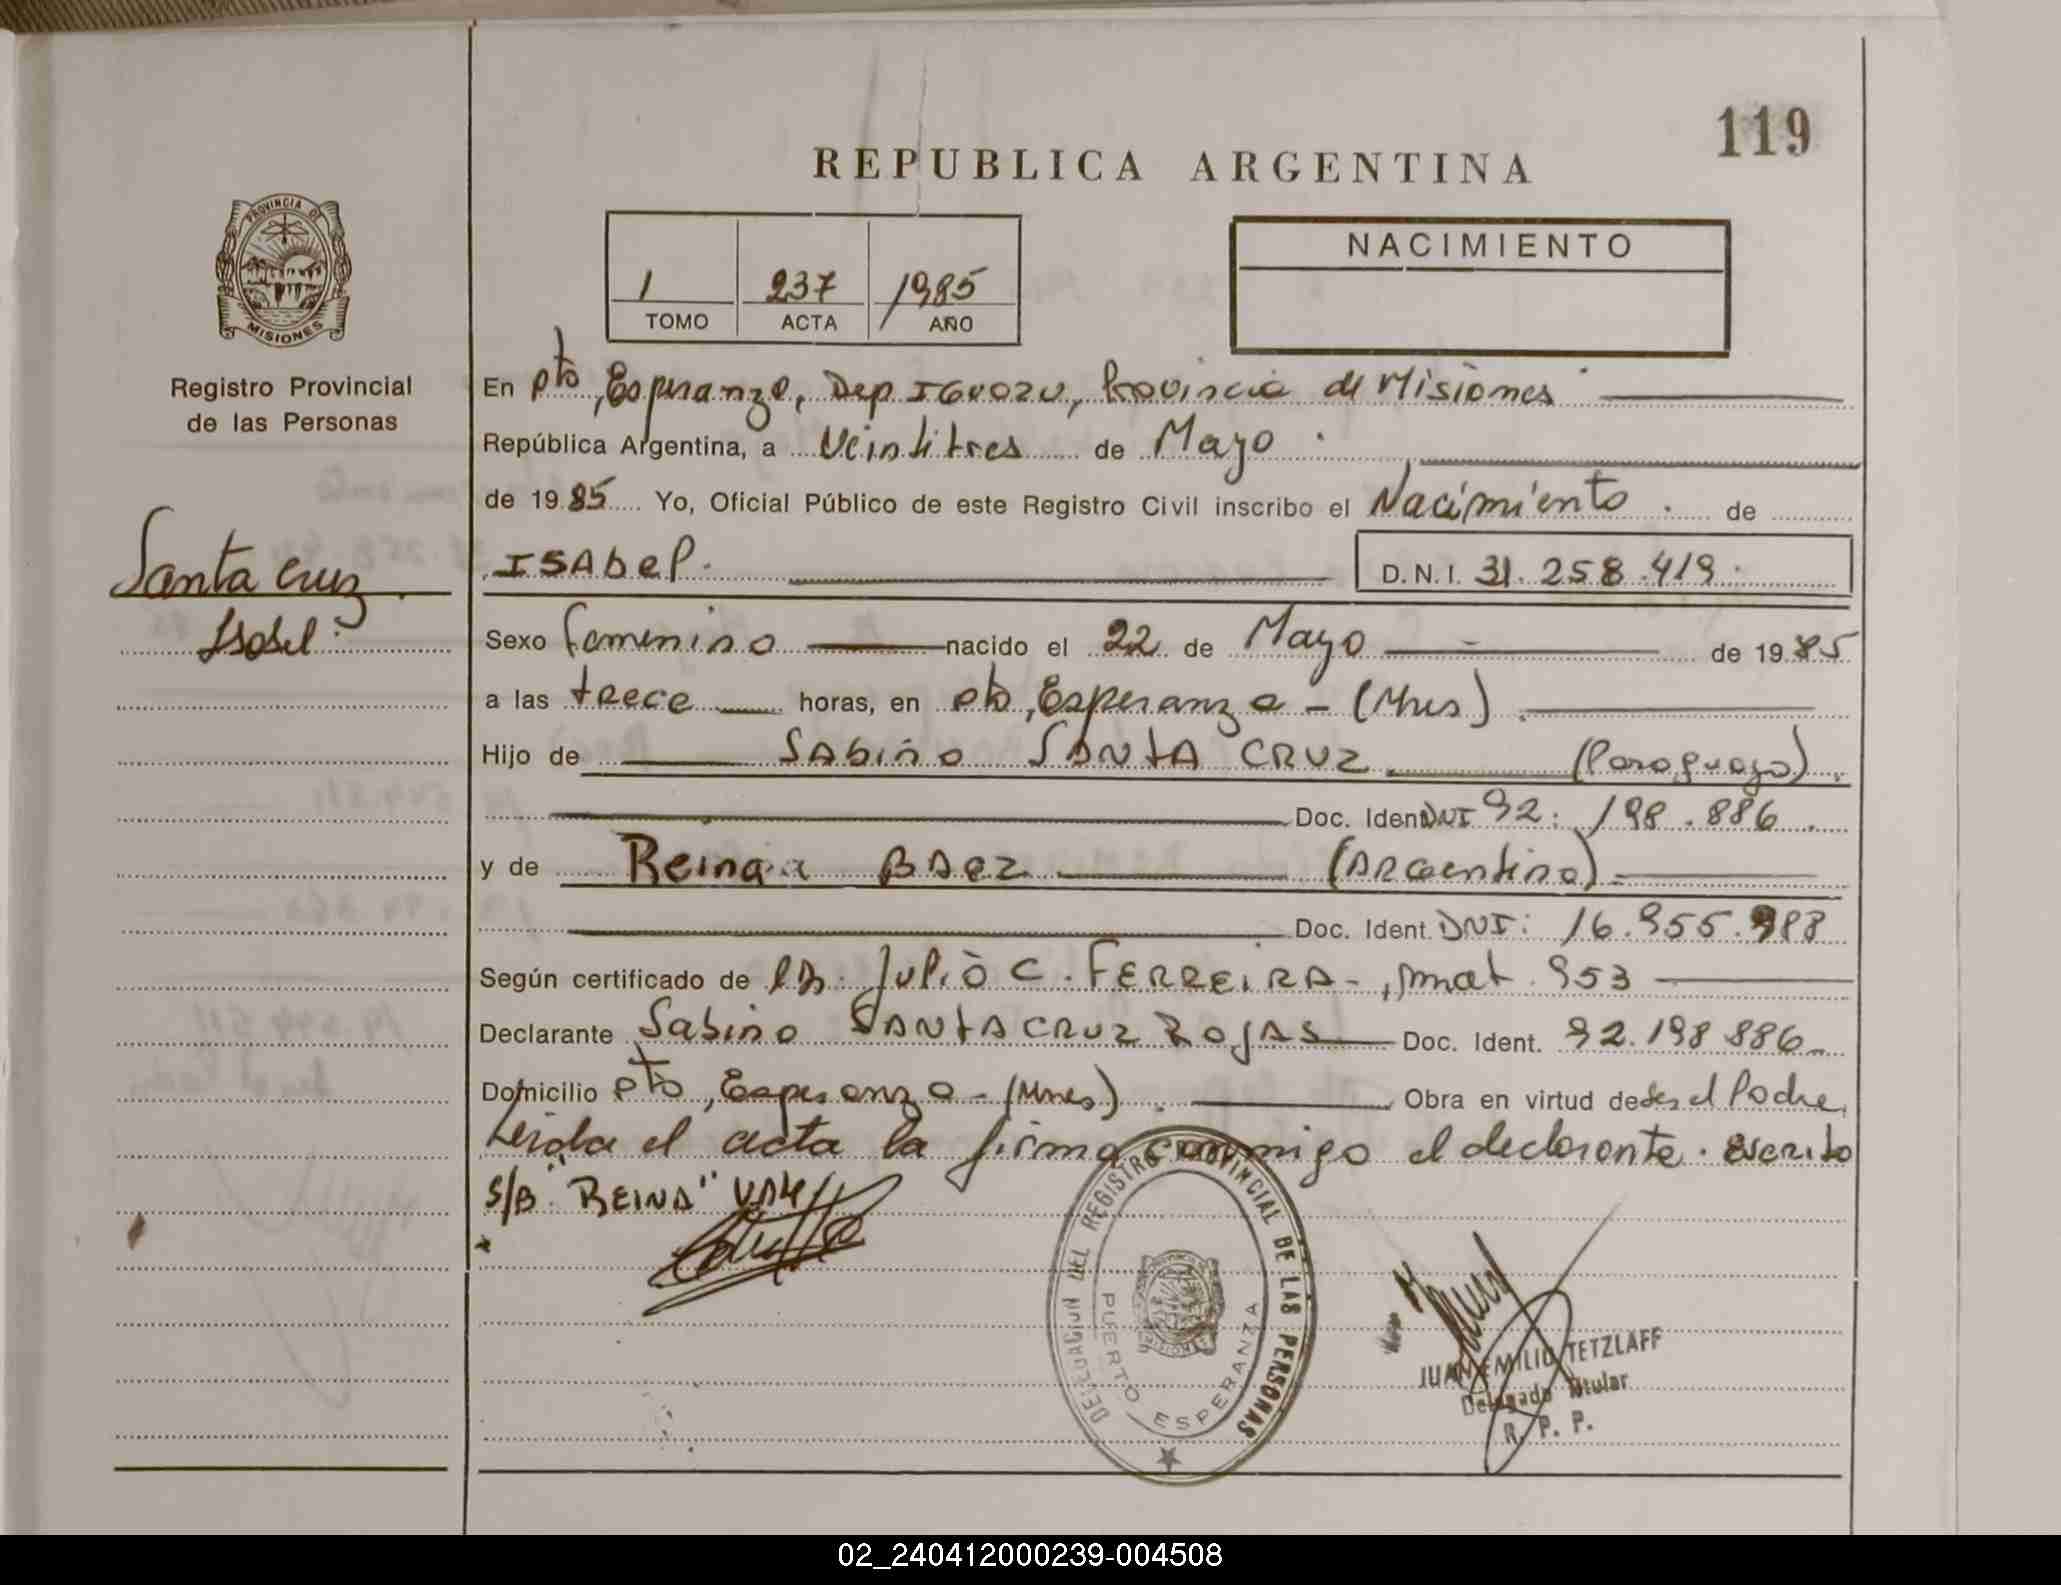 119
REPUBLICA ARGENTINA
PROVINCIA DE
MISIONES
1 237 1985
TOMO ACTA AÑO
NACIMIENTO
Registro Provincial
de las Personas
Santa Cruz
Isabel
En Pto, Esperanza, Dep IGUAZU, Provincia de Misiones
República Argentina, a Veintitres de Mayo
de 1985 Yo, Oficial Público de este Registro Civil inscribo el Nacimiento de
ISAbel. D.N.I. 31.258.419.
Sexo Femenino nacido el 22 de Mayo de 1985
a las trece horas, en Pto, Esperanza - (Mnes)
Hijo de SAbino SANtA CRUZ (Paraguayo).
Doc. Ident DNI 92.198.886.
y de Reina BAez (ARGentina)
Doc. Ident. DNI: 16.955.988
Según certificado de Julio C. FERREiRA-, mat. 953
Declarante Sabino SANtACRUZ ROJAS Doc. Ident. 92.198 886
Domicilio Pto, Esperanza - (Mnes) Obra en virtud de ser el Padre,
Leida el acta la firma conmigo el declarante. Escrito
S/B "REINA" VALE
DELEGACION DEL REGISTRO PROVINCIAL DE LAS PERSONAS
PUERTO ESPERANZA
JUAN EMILIO TETZLAFF
Delegado Titular
R. P. P.
02_240412000239-004508